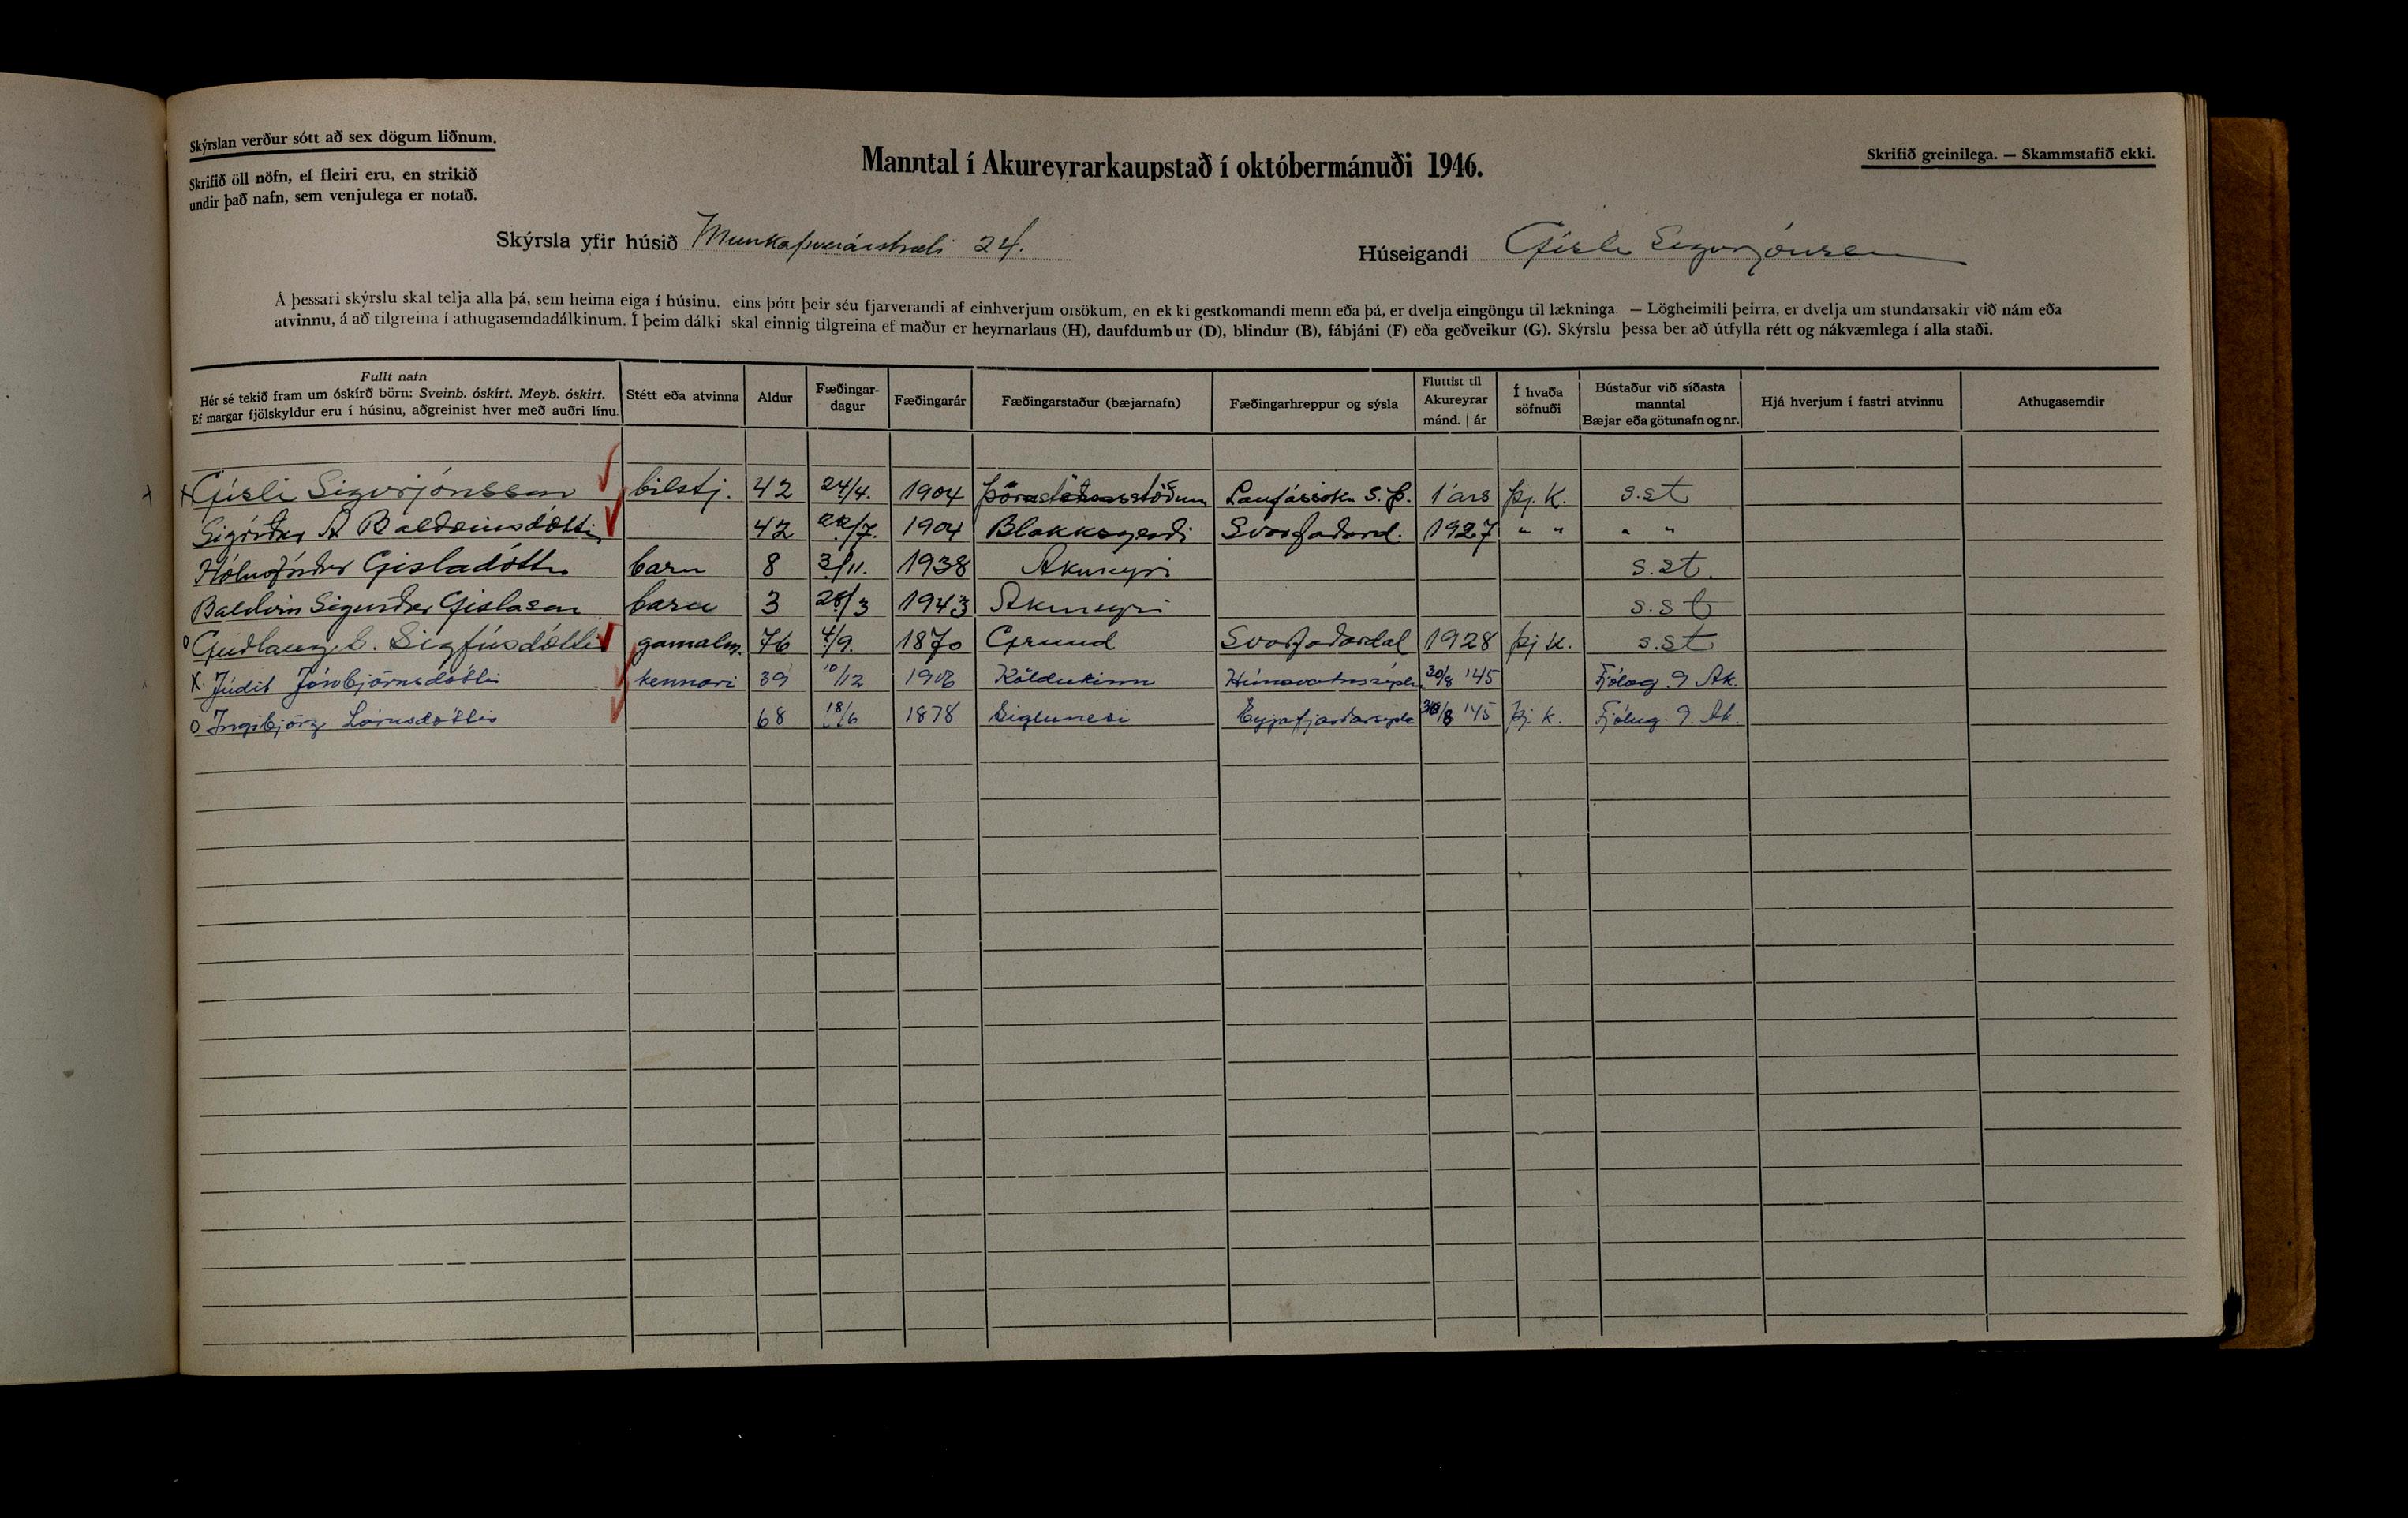 Skýrslan verður sótt að sex dögum liðnum.
Skrifið öll nöfn, ef fleiri eru, en strikið
undir það nafn, sem venjulega er notað.
Manntal í Akureyrarkaupstað í októbermánuði 1946.
Skrifið greinilega. — Skammstafið ekki.
Skýrsla yfir húsið Munkaþverárstræti 24.
Húseigandi Gísli Sigurjónsson
Á þessari skýrslu skal telja alla þá, sem heima eiga í húsinu, eins þótt þeir séu fjarverandi af einhverjum orsökum, en ekki gestkomandi menn eða þá, er dvelja eingöngu til lækninga. — Lögheimili þeirra, er dvelja um stundarsakir við nám eða
atvinnu, á að tilgreina í athugasemdadálkinum. Í þeim dálki skal einnig tilgreina ef maður er heyrnarlaus (H), daufdumbur (D), blindur (B), fábjáni (F) eða geðveikur (G). Skýrslu þessa ber að útfylla rétt og nákvæmlega í alla staði.
Fullt nafn
Hér sé tekið fram um óskírð börn: Sveinb. óskírt. Meyb. óskírt.
Ef margar fjölskyldur eru í húsinu, aðgreinist hver með auðri línu.
Stétt eða atvinna
Aldur
Fæðingar-
dagur
Fæðingarár
Fæðingarstaður (bæjarnafn)
Fæðingarhreppur og sýsla
Fluttist til
Akureyrar
mánd. | ár
Í hvaða
söfnuði
Bústaður við síðasta
manntal
Bæjar eða götunafn og nr.
Hjá hverjum í fastri atvinnu
Athugasemdir
x Gísli Sigurjónsson bílstj. 42 24/4. 1904 Laufássókn S.Þ. 1 árs þj. K. s.st
Sigríður A Baldvinsdóttir 42 /7. 1904 Blakksgerði Svarfaðard. 1927 " " " "
Hólmfríður Gísladóttir barn 8 3/11. 1938 Akureyri s.st.
Baldvin Sigurður Gíslason barn 3 28/3 1943 Akureyri s.st
o Guðlaug S. Sigfúsdóttir gamalm. 76 4/9. 1870 Grund Svarfaðardal 1928 þj K. s.st
x. Júdit Jónbjörnsdóttir kennari 39 10/12 1906 Köldukinn Húnavatnssýslu 30/8 '45 Fjólug. 9 Ak.
o Ingibjörg Lárusdóttir 68 18/6 1878 Siglunesi Eyjafjarðarsýslu 30/8 '45 þj. k. Fjólug. 9. Ak.